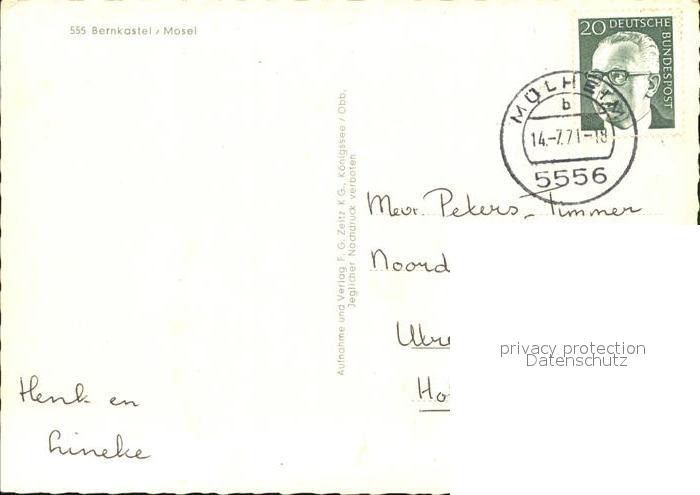 555 Bernkastel / Mosel
20 DEUTSCHE BUNDESPOST
MÜLHEIM
b
14.-7.71-18
5556
Mevr. Peters-Timmer
Noord
Utre
Ho
privacy protection
Datenschutz
Aufnahme und Verlag F. G. Zeitz K G., Königssee / Obb.
Jeglicher Nachdruck verboten
Henk en
Lineke